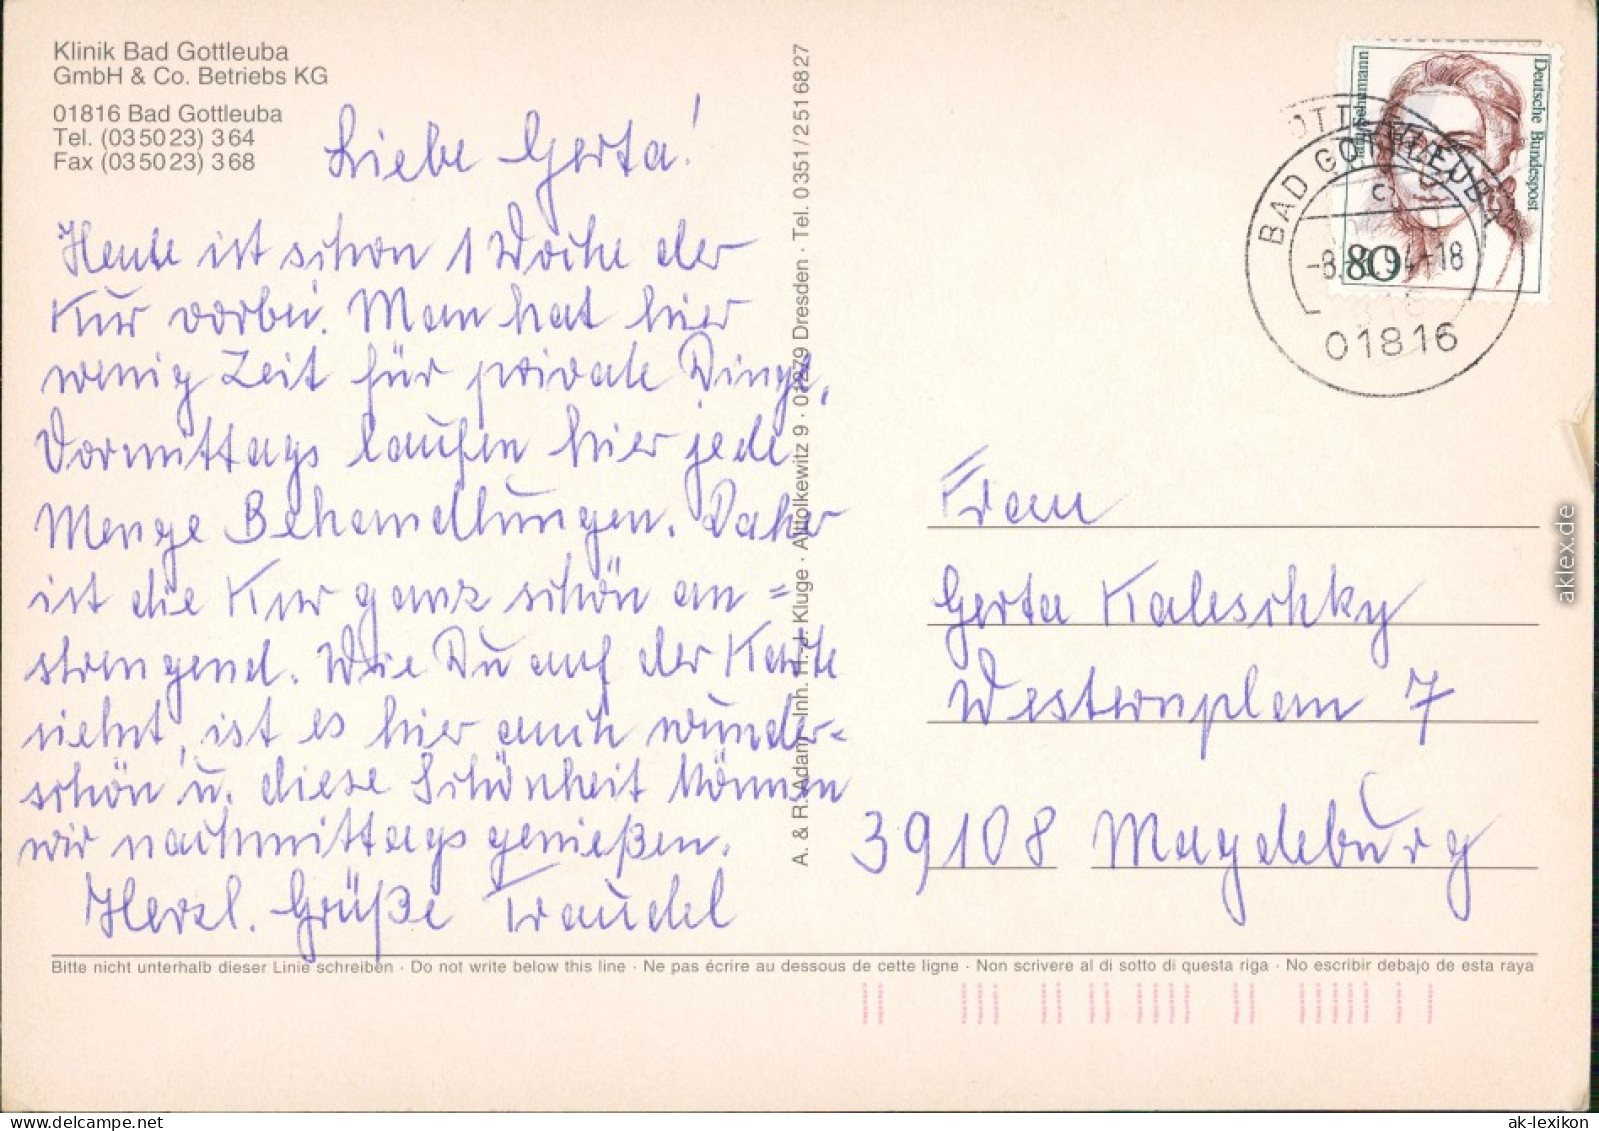 Klinik Bad Gottleuba
GmbH & Co. Betriebs KG
01816 Bad Gottleuba
Tel. (035023) 364
Fax (035023) 368
Liebe Gerta!
Heute ist schon 1 Woche der
Kur vorbei. Man hat hier
wenig Zeit für private Dinge.
Vormittags laufen hier jede
Menge Behandlungen. Daher
ist die Kur ganz schön an=
strengend. Wie Du auf der Karte
siehst, ist es hier auch wunder-
schön u. diese Schönheit können
wir nachmittags genießen.
Herzl. Grüße Traudel
A. & R. Adam, Inh. H. J. Kluge · Alttolkewitz 9 · 01279 Dresden · Tel. 0351/2516827
Deutsche Bundespost
80
BAD GOTTLEUBA
c
94-18
01816
Frau
Gerta Kaleschky
Westernplan 7
39108 Magdeburg
Bitte nicht unterhalb dieser Linie schreiben · Do not write below this line · Ne pas écrire au dessous de cette ligne · Non scrivere al di sotto di questa riga · No escribir debajo de esta raya
aklex.de
www.delcampe.net
ak-lexikon